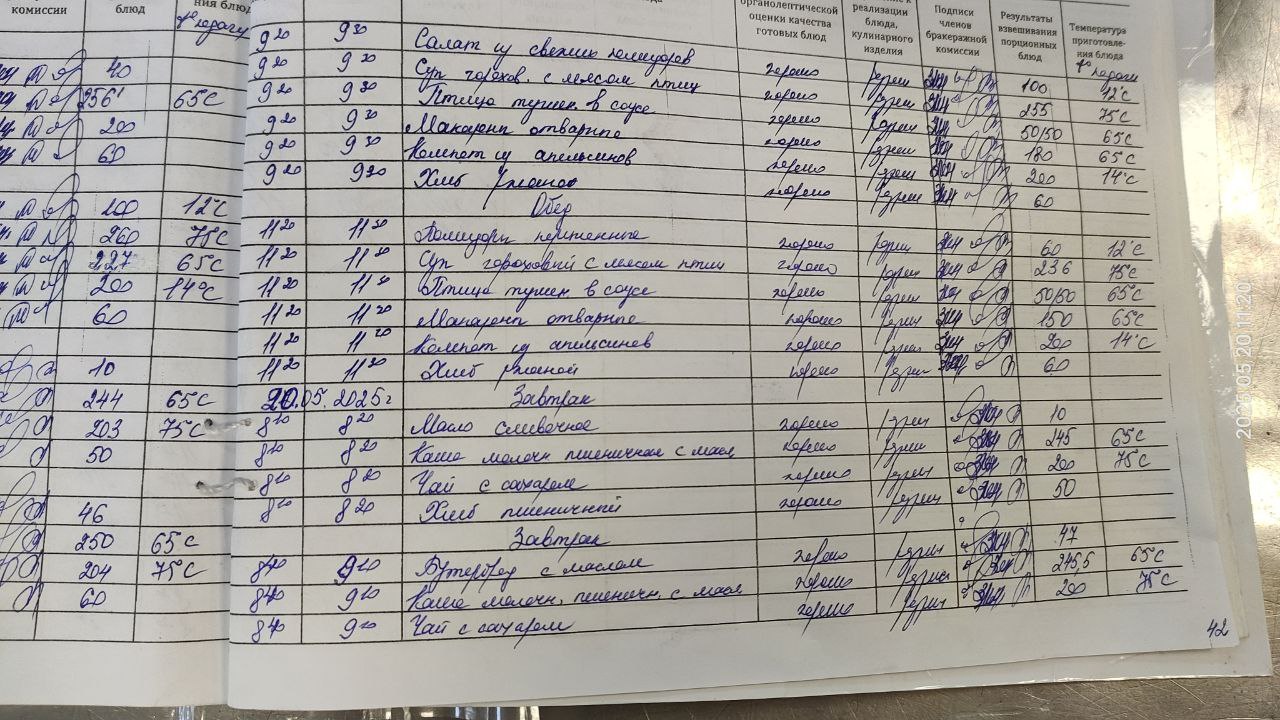 комиссии
блюд
ния блюд
40
256 65С
200
60
200 12°С
260 75С
227 65С
200 14°С
60
10
244 65С
203 75С
50
46
250 65С
204 75°С
60
органолептической оценки качества готовых блюд
реализации блюда, кулинарного изделия
Подписи членов бракеражной комиссии
Результаты взвешивания порционных блюд
Температура приготовления блюда
9 20 9 30 Салат из свежих помидоров хорошо 100 12°С
9 20 9 30 Суп горохов. с мясом птиц хорошо 255 75С
9 20 9 30 Птица тушен в соусе хорошо 50/50 65С
9 20 9 30 Макароны отварные хорошо 180 65С
9 20 9 30 Компот из апельсинов хорошо 200 14°С
9 20 9 20 Хлеб ржаной хорошо 60
Обед
11 20 11 20 Помидоры порционные хорошо 60 12°С
11 20 11 20 Суп гороховый с мясом птиц хорошо 236 75С
11 20 11 20 Птица тушен в соусе хорошо 50/50 65С
11 20 11 20 Макароны отварные хорошо 150 65С
11 20 11 20 Компот из апельсинов хорошо 200 14°С
11 20 11 20 Хлеб ржаной хорошо 60
20.05.2025г Завтрак
8 10 8 20 Масло сливочное хорошо 10
8 10 8 20 Каша молочн пшеничная с масл хорошо 245 65С
8 10 8 20 Чай с сахаром хорошо 200 75С
8 10 8 20 Хлеб пшеничный хорошо 50
Завтрак
8 40 9 10 Бутерброд с маслом хорошо 47
8 40 9 10 Каша молочн. пшеничн. с масл хорошо 245,5 65С
8 40 9 10 Чай с сахаром хорошо 200 75°С
42
2025.05.20 11:20